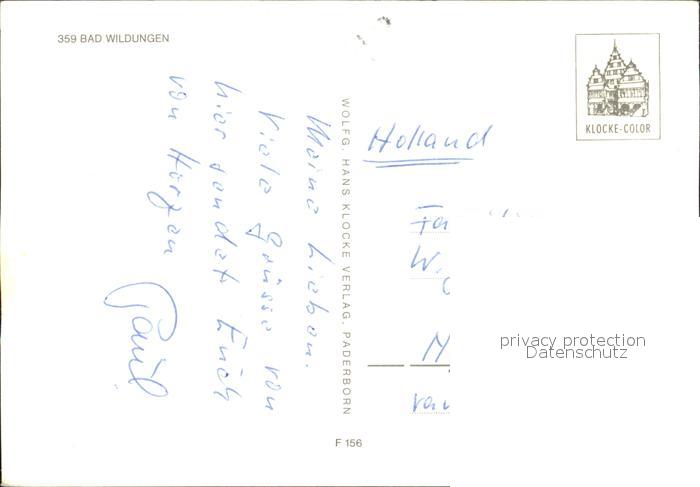 359 BAD WILDUNGEN
Meine Lieben.
Viele Grüsse von
hier sendet Euch
von Herzen
Paul
WOLFG. HANS KLOCKE VERLAG, PADERBORN
F 156
KLOCKE-COLOR
Holland
Fa
W.
M
privacy protection
Datenschutz